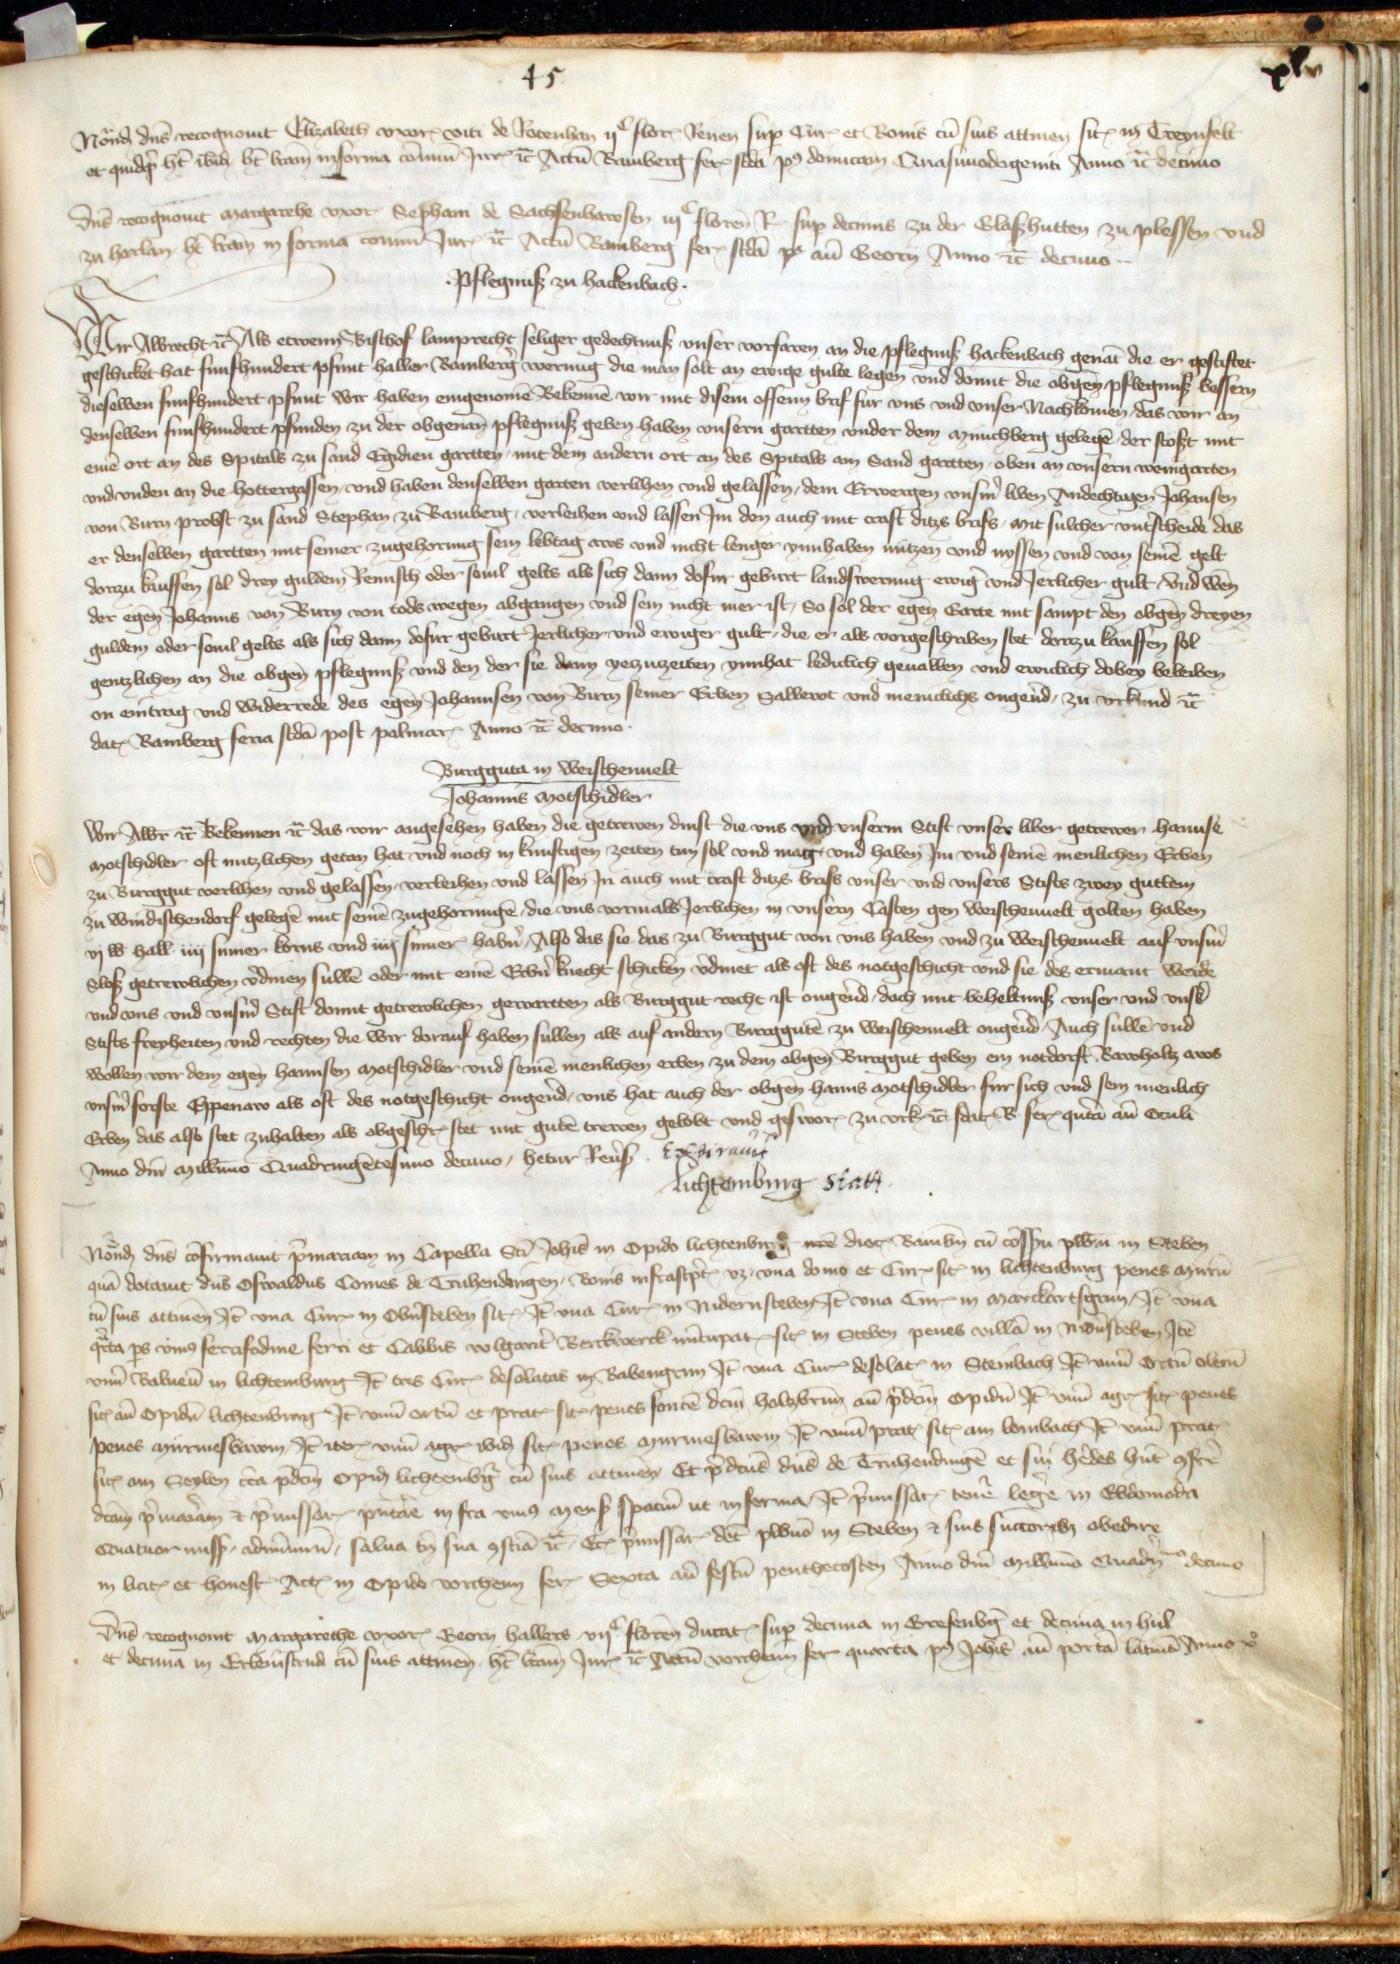 45
xlv
Notand dns recognouit Elizabeth vxor viti de Rotenhan ijc flor Renen sup Cur et Bonis cu suis attinen sit in Treynfelt
et quidqd ht ibid ht lram in forma comuni Jur etc Actu Bamberg fer scda p9 dominicam Quasimodogeniti Anno etc decimo
Dns recognouit margarethe vxor Stephani de Sachsenhawsen iijc floren R sup decimis zu der Glaszhutten zu plessen vnd
zu horlan ht lram in forma comuni Jur etc Actu Bamberg fer scda p9 an Georii Anno etc decimo
Pflegnusz zu hackenbach
Wir Albrecht etc Als etwenn Bischof lamprecht seliger gedechtnusz vnser vorfaren an die pflegnusz hackenbach genat die er gestiftet
geschicket hat funfhundert pfunt haller Bamberger werung die man solt an ewige gulte legen vnd domit die obgen pflegnusz bessern
dieselben funfhundert pfunt wir haben eingenomen Bekennen wir mit disem offenn brif fur vns vnd vnser Nachkomen das wir an
denselben funfhundert pfunden zu der obgenan pflegnusz geben haben vnsern gartten vnder dem munchberg gelegen der stoszt mit
eine ort an des Spitals zu sand Egidien gartten mit dem andern ort an des Spitals am Sand gartten oben an vnsern weingarten
vnd vnden an die hottergassen vnd haben denselben garten verlihen vnd gelassen dem Erwergen vnsm liben Andechtigen Johansen
von Birn probst zu sand Stephan zu Bamberg verleihen vnd lassen Im den auch mit craft ditzs brifs mit sulcher vntscheide das
er denselben gartten mit seiner zugehorung sein lebtag aws vnd nicht lenger ynnhaben nutzen vnd nyssen vnd von seine gelt
dorzu kauffen sol drey guldein Reinisch oder souil gelts als sich dann dofur geburt landswerung ewig vnd Jerlicher gult vnd wen
der egen Johanns von Birn von tods wegen abgangen vnd sein nicht mer ist So sol der egen Garte mit sampt den obgen dreyen
guldein oder souil gelts als sich dann dofur geburt Jerlicher vnd ewiger gult die er als vorgeschriben stet dorzu kauffen sol
gentzlichen an die obgen pflegnusz vnd den der sie dann yezuzeiten ynnhat lediclich geuallen vnd ewiclich dobey beleiben
on eintrag vnd widerrede des egen Johannsen von Birn seiner Erben Salleut vnd meniclichs ongeud zu vrkund etc
dat Bamberg feria scda post palmar Anno etc decimo
Burgguta in weischenuelt
Johanns motschidler
Wir Albr etc Bekennen etc das wir angesehen haben die getrewen dinst die vns vnd vnserm Stift vnser liber getrewer hannse
motschidler oft nutzlichen getan hat vnd noch in kunftigen zeiten tun sol vnd mag vnd haben Im vnd seine menlichen Erben
zu Burggut verlihen vnd gelassen verleihen vnd lassen In auch mit craft ditzs brifs vnser vnd vnsers Stifts zwey gutlein
zu windischendorf gelegen mit seine zugehorungen die vns vormals Jerlichen in vnsern Casten gen weischenuelt golten haben
vj lb hall iiij sumer korns vnd iiij sumer habn Also das sie das zu Burggut von vns haben vnd zu weischenuelt auf vnsm
Slosz getrewlichen vdinen sullen oder mit eine Erbn knecht schicken vdinet als oft des notgeschicht vnd sie des ermant werde
vnd vns vnd vnsm Stift domit getrewlichen gewartten als Burggut recht ist ongeud doch mit beheltnusz vnser vnd vns
Stifts freyheiten vnd rechten die wir dorauf haben sullen als auf andern Burgguten zu weischenuelt ongeud Auch sullen vnd
wollen wir dem egen hannsen motschidler vnd seine menlichen erben zu dem obgen Burggut geben ein notdorft Bawholtz aws
vnsm forste Eppenaw als oft des notgeschicht ongeud vns hat auch der obgen hanns motschidler fur sich vnd sein menlich
Erben das also stet zuhalten als obgeschr stet mit guten trewen gelobt vnd geswor zu vrk etc dat B fer quita an Oculi
Anno dni millimo Quadringentesimo decimo hetur Reuers
Expirauit
lichtemburg Statt
Notand dns cofirmauit primariam in Capella Sti Johis in Opido lichtenburg dioc Bambn cu cosensu plbni in Steben
qua dotauit dns Oswaldus Comes de Truhendingen Bonis infrascpt vz vna domo et Cur sit in lichtenburg penes muru
cu suis attinen It vna Cur in Obnsteben sit It vna Cur in Nidernsteben It vna Cur in marckartsgrun It vna
qrta ps vnius ferrifodine ferri et Cabbis volgarit Berckwerck nucupat sit in Steben penes villa in Nidnsteben Ite
vnu Balneu in lichtemburg It tres Cur desolatas in Rabengrun It vna Cur desolat in Steinbach It vnu Ortu oleru
sit an Opidu lichtenburg It vnu ortu et prat sit penes fonte dcm holtzbrun an pdcm Opidu It vnu agr sit penes
penes murmesbawm It iter vnu agr ibid sit penes murmesbawm It vnu prat sit am lombach It vnu prat
sit am Seylen circa pdcm Opid lichtemburg cu suis attinen Et pdcus dns de Truhendinge et sui hedes hnt
dcam pmariam et pmissar pntare infra vnius mens spatiu ut in forma It pmissar tenetur legere in Ebdomoda
Quatuor miss salua tn sua etc Et pmissar det plbno in Steben et suis successoribus obedire
in licit et honest Act in Opido vorchein fer Sexta an festu penthecosten Anno dni millimo Quadrin decimo
Dns recognouit margarethe vxor Georii hallers vijc floren ducat sup decima in Grefenbg et decima in hul
et decima in Erlenistrud cu suis attinen ht lram Jur etc Actu vorcheim fer quarta p9 Johis an porta latina Anno xo